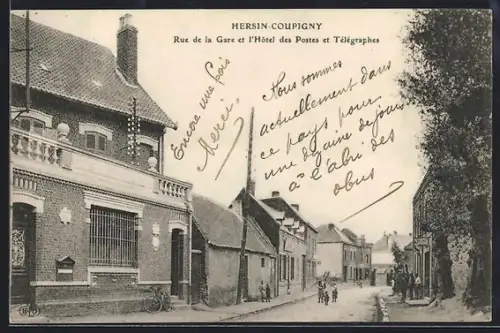 HERSIN-COUPIGNY
Rue de la Gare et l'Hôtel des Postes et Télégraphes
Encore une fois
Merci
Nous sommes
actuellement dans
ce pays pour
une dizaine de jours
à l'abri des
obus